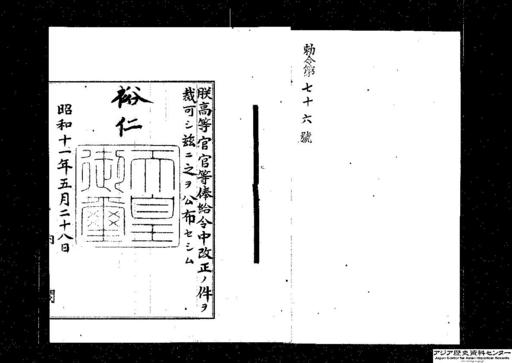 勅令第七十六號
朕高等官官等俸給令中改正ノ件ヲ
裁可シ玆ニ之ヲ公布セシム
裕仁
天皇
御璽
昭和十一年五月二十八日
内閣
アジア歴史資料センター
Japan Center for Asian Historical Records